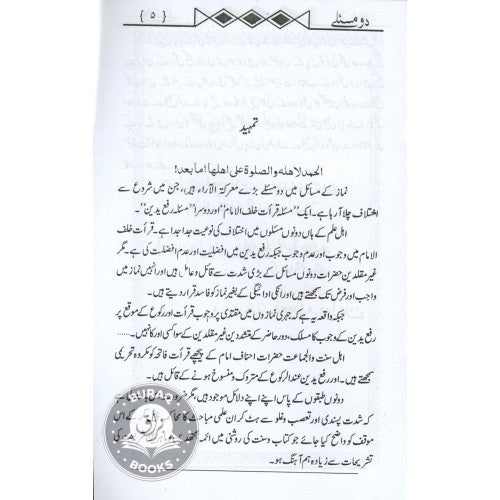 دو مسئلے
{ ۵ }
تمہید
الحمد لاهله والصلوة على اهلها اما بعد!
نماز کے مسائل میں دو مسئلے بڑے معرکۃ الآراء ہیں، جن میں شروع سے
اختلاف چلا آرہا ہے۔ ایک "مسئلہ قرأت خلف الامام" اور دوسرا "مسئلہ رفع یدین"۔
اہل علم کے ہاں دونوں مسئلوں میں اختلاف کی نوعیت جدا جدا ہے۔ قرأت خلف
الامام میں وجوب اور عدم وجوب جبکہ رفع یدین میں افضلیت اور عدم افضلیت کی ہے۔ مگر
غیر مقلدین حضرات دونوں مسائل کے بڑی شدت سے قائل و عامل ہیں اور انہیں نماز میں
واجب اور فرض تک سمجھتے ہیں اور انکی ادائیگی کے بغیر نماز کو فاسد قرار دیتے ہیں۔
جبکہ واقعہ یہ ہے کہ جہری نمازوں میں مقتدی پر وجوب قرأت اور رکوع کے موقع پر
رفع یدین کے وجوب کا مسلک، دور حاضر کے متشددین غیر مقلدین کے سوا کسی اور کا نہیں۔
اہل سنت والجماعت حضرات احناف امام کے پیچھے قرأت فاتحہ کو مکروہ تحریمی
سمجھتے ہیں۔ اور رفع یدین عند الرکوع کے متروک و منسوخ ہونے کے قائل ہیں۔
دونوں طبقوں کے پاس اپنے اپنے دلائل موجود ہیں، مگر
کہ شدت پسندی اور تعصب و غلو سے ہٹ کر ان علمی مباحث کا اس
موقف کو واضح کیا جائے جو کتاب و سنت کی روشنی میں ائمہ کی
تشریحات سے زیادہ ہم آہنگ ہو۔
BURAQ
براق
BOOKS